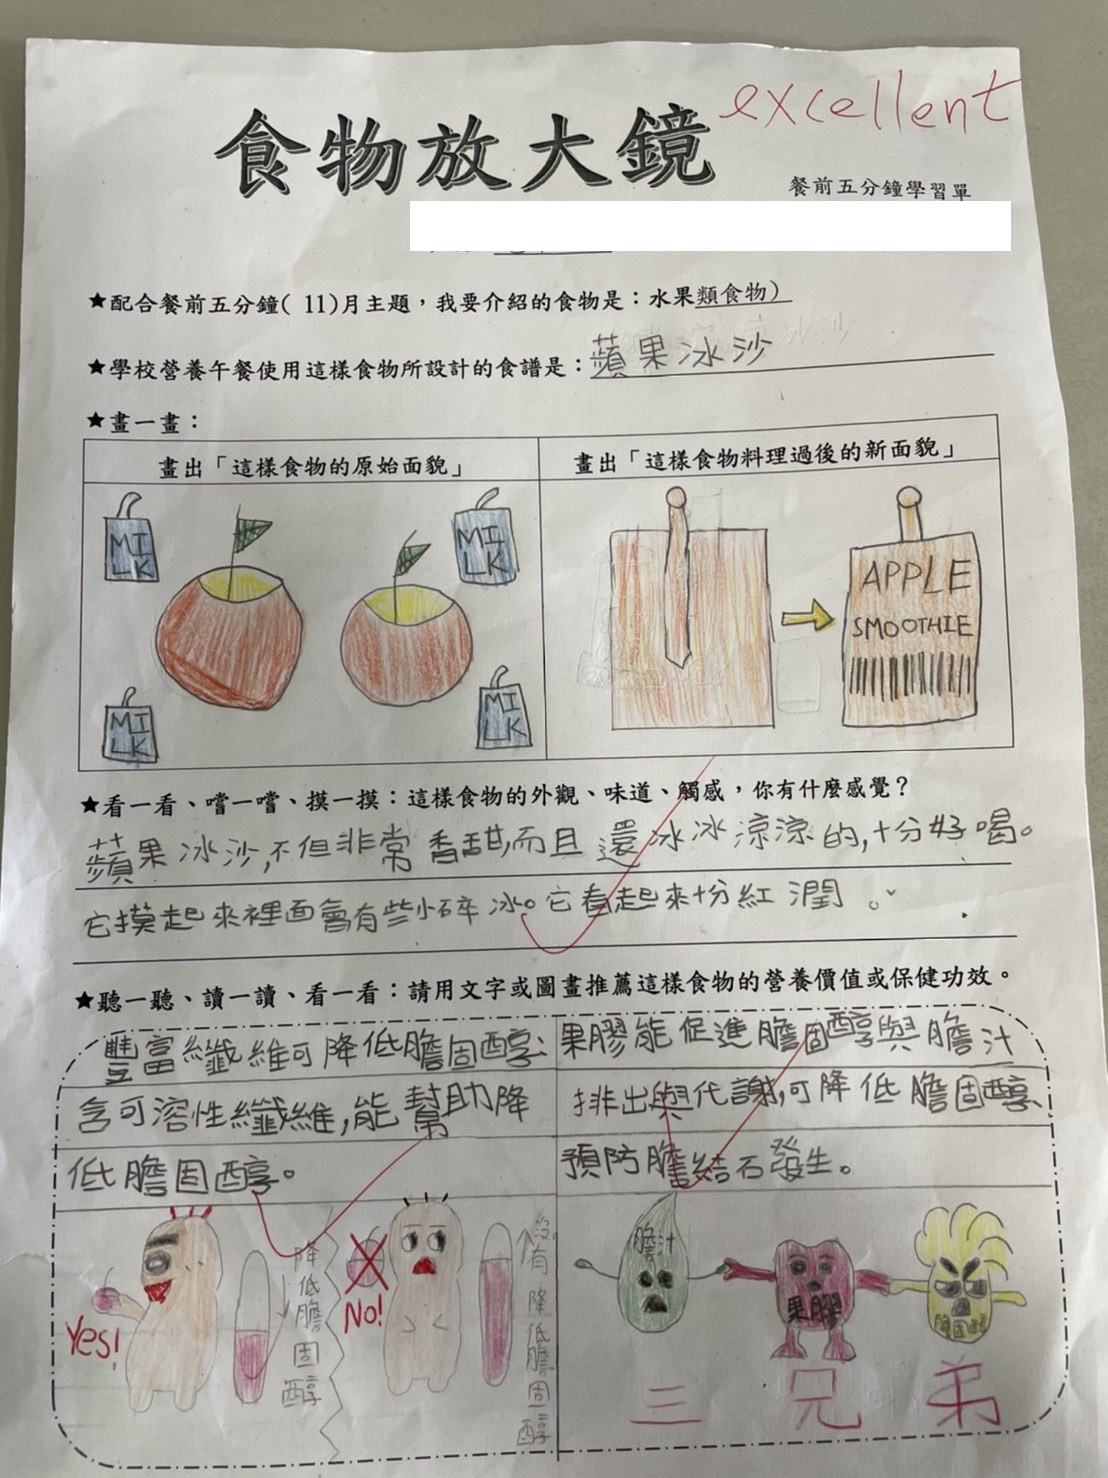 excellent
食物放大鏡
餐前五分鐘學習單
★配合餐前五分鐘( 11)月主題，我要介紹的食物是：水果類食物）
★學校營養午餐使用這樣食物所設計的食譜是：蘋果冰沙
★畫一畫：
畫出「這樣食物的原始面貌」
畫出「這樣食物料理過後的新面貌」
MI
LK
MI
LK
MI
LK
MI
LK
APPLE
SMOOTHIE
★看一看、嚐一嚐、摸一摸：這樣食物的外觀、味道、觸感，你有什麼感覺？
蘋果冰沙,不但非常香甜,而且還冰冰涼涼的,十分好喝。
它摸起來裡面會有些小碎冰。它看起來十分紅潤。
★聽一聽、讀一讀、看一看：請用文字或圖畫推薦這樣食物的營養價值或保健功效。
豐富纖維可降低膽固醇:
含可溶性纖維,能幫助降
低膽固醇。
果膠能促進膽固醇與膽汁
排出與代謝,可降低膽固醇
預防膽結石發生。
Yes!
降低膽固醇
No!
沒有降低膽固醇
膽汁
果膠
膽固醇
三兄弟